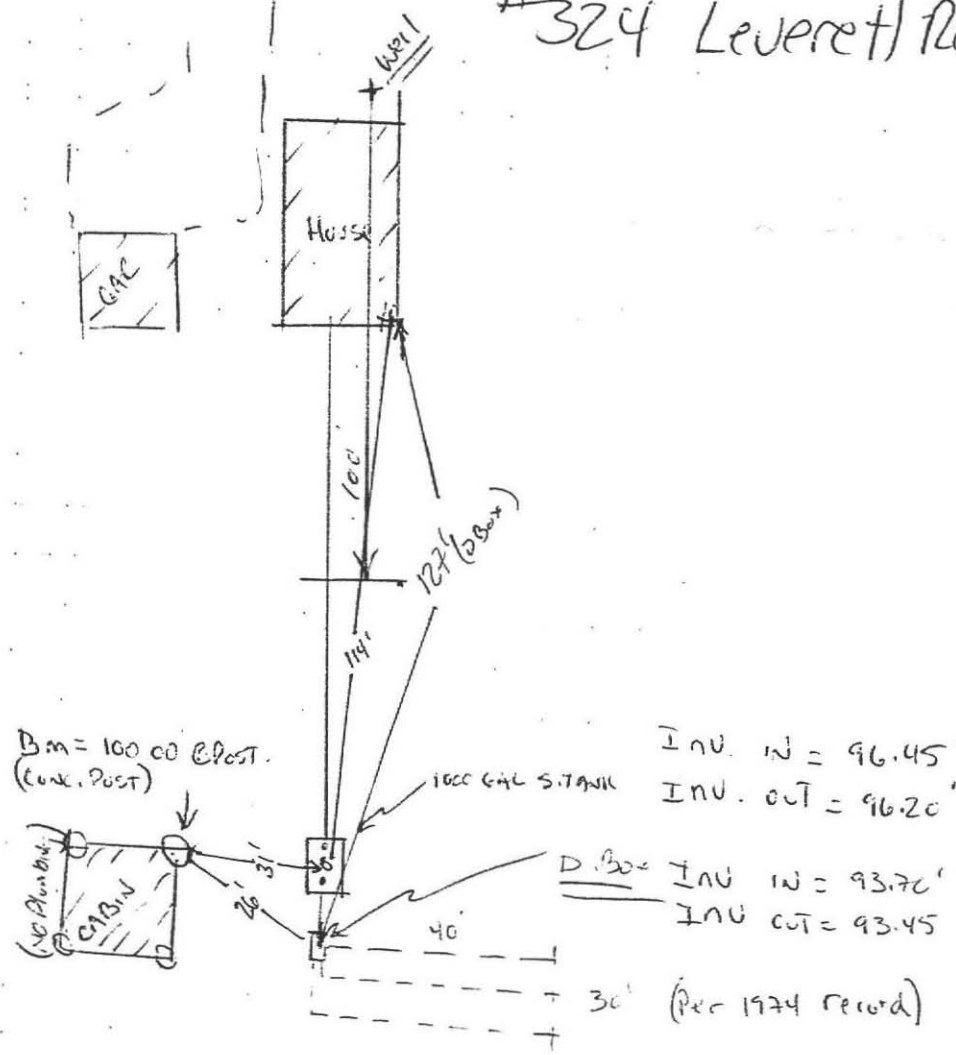 #324 Leverett R
Well
House
GAR
100'
127' (DBox)
114'
BM = 100.00 @ POST.
(CONC. POST)
1000 GAL S.TANK
INV. IN = 96.45
INV. OUT = 96.20'
31'
26'
CABIN
D.Box INV IN = 93.70'
INV OUT = 93.45
40'
30' (Per 1974 record)